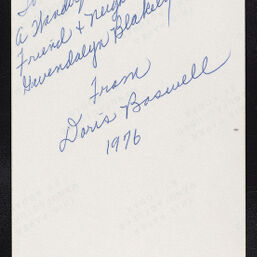 To
A Wonderful
Friend & Neigh
Gwendolyn Blakely
From
Doris Boswell
1976